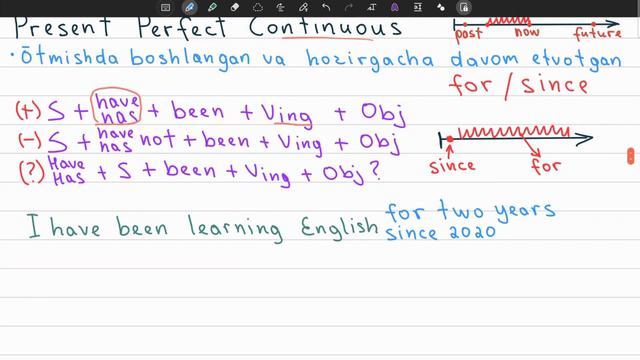 Present Perfect Continuous
past now future
• Ōtmishda boshlangan va hozirgacha davom etvotgan
for / since
(+) S + have has + been + Ving + Obj
(-) S + have has not + been + Ving + Obj
(?) Have Has + S + been + Ving + Obj?
since for
I have been learning English for two years
since 2020